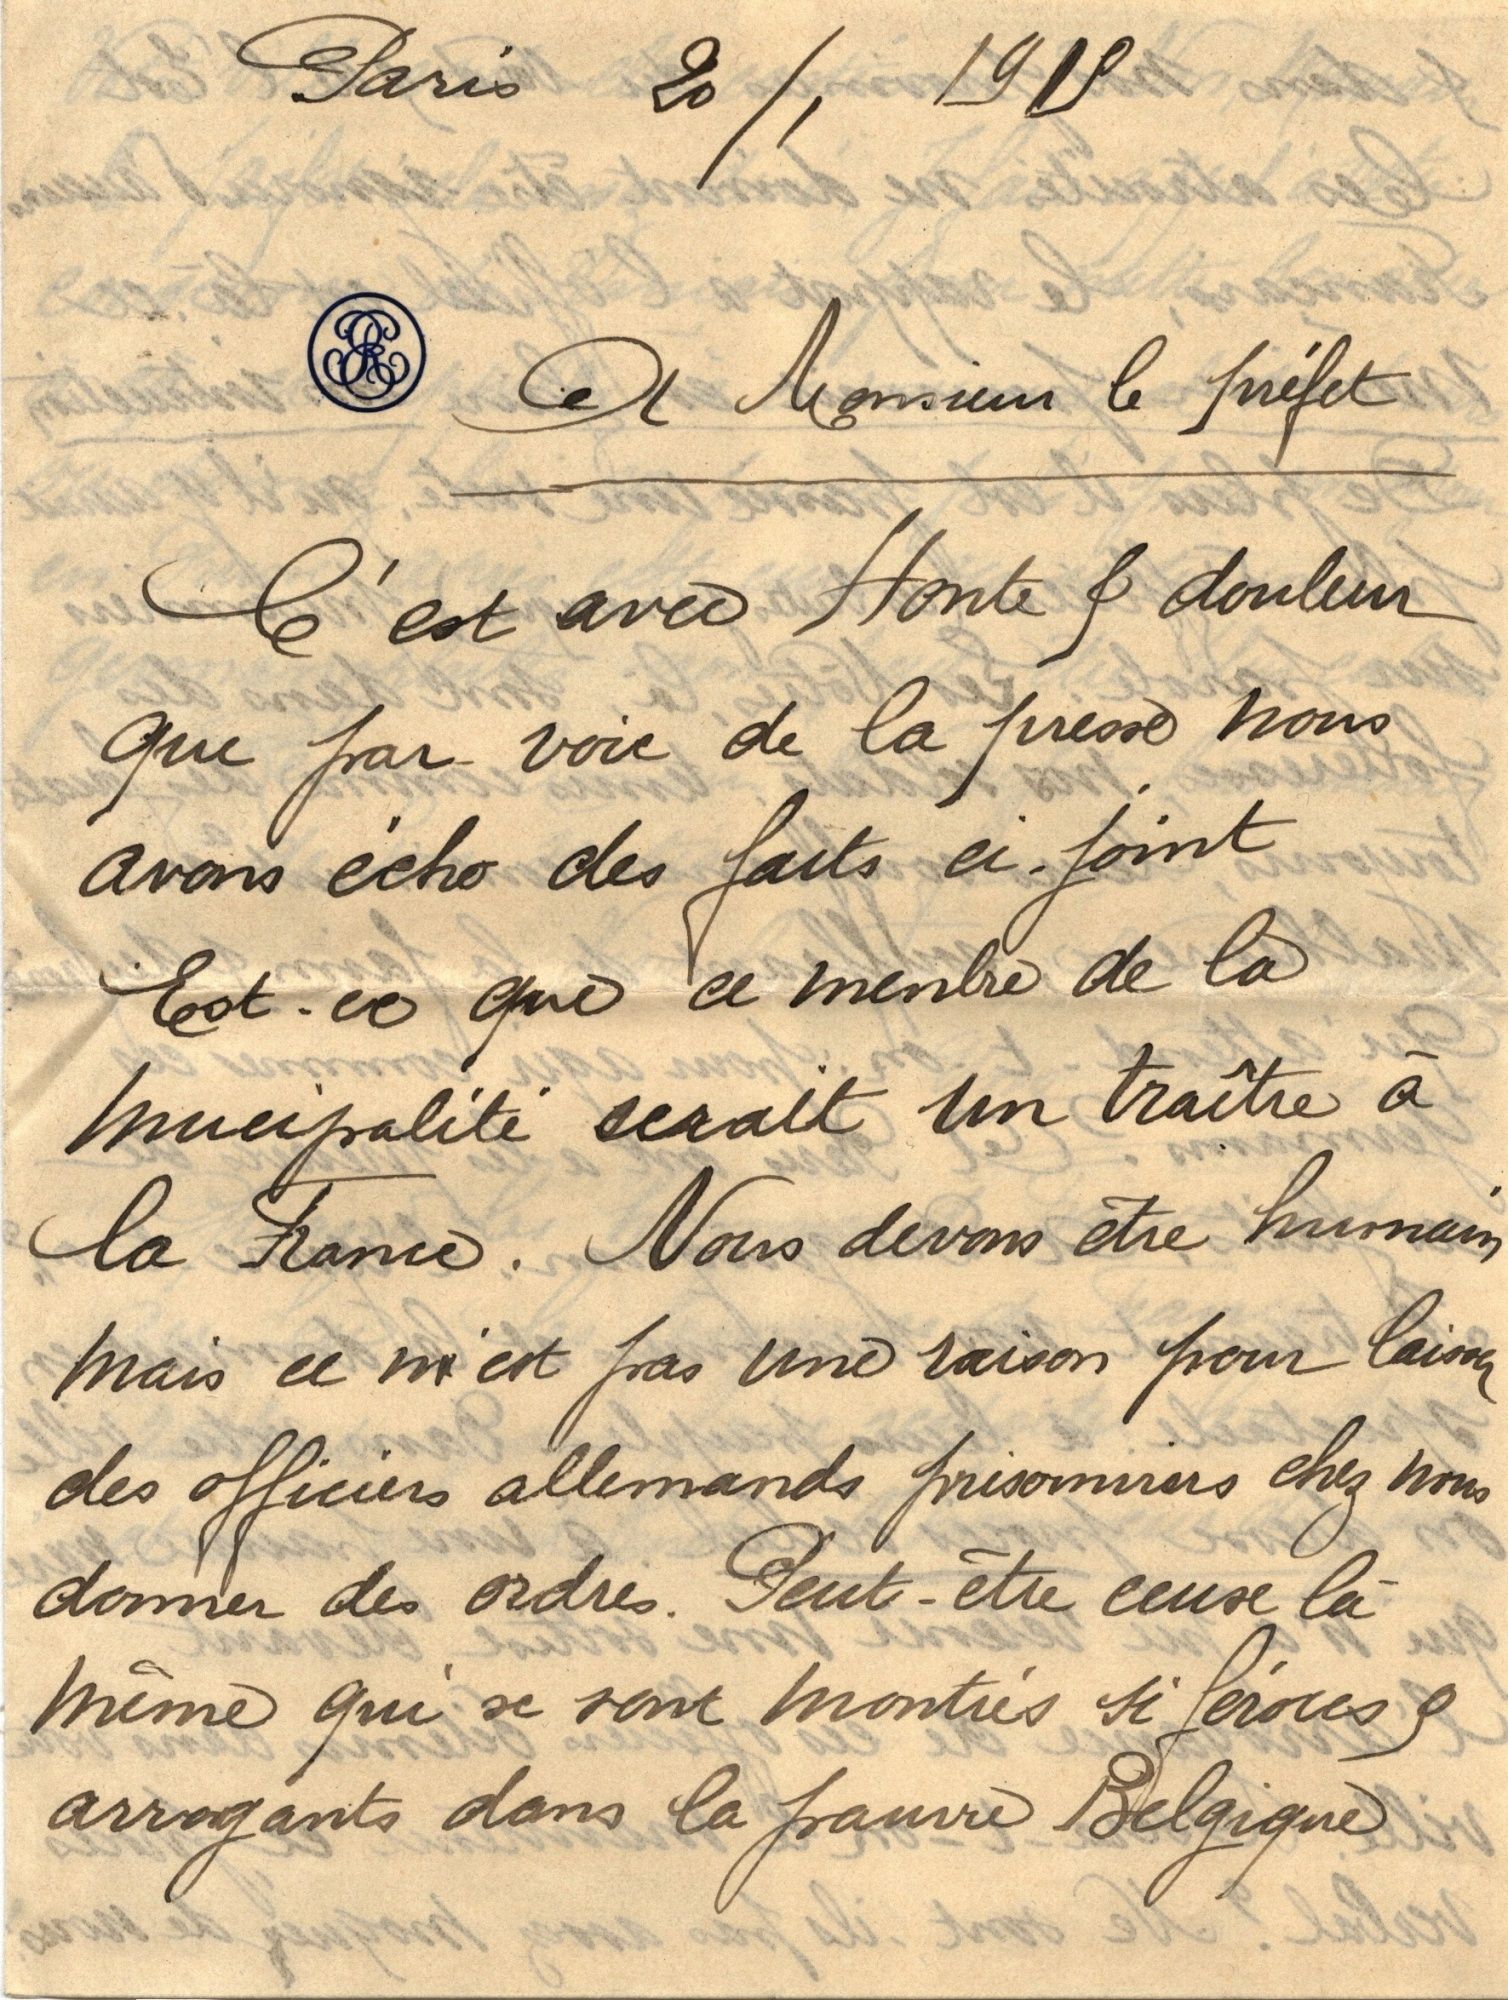 Paris 20/1 1919
A Monsieur le préfet
C'est avec Honte & douleur
que par voie de la presse nous
avons écho des faits ci-joint
Est-ce que ce menbre de la
mucipalité serait un traître à
la France. Nous devons être humain
mais ce n'est pas une raison pour laisser
des officiers allemands prisonniers chez nous
donner des ordres. Peut-être ceuse là
même qui se sont montrés si féroces &
arrogants dans la pauvre Belgique